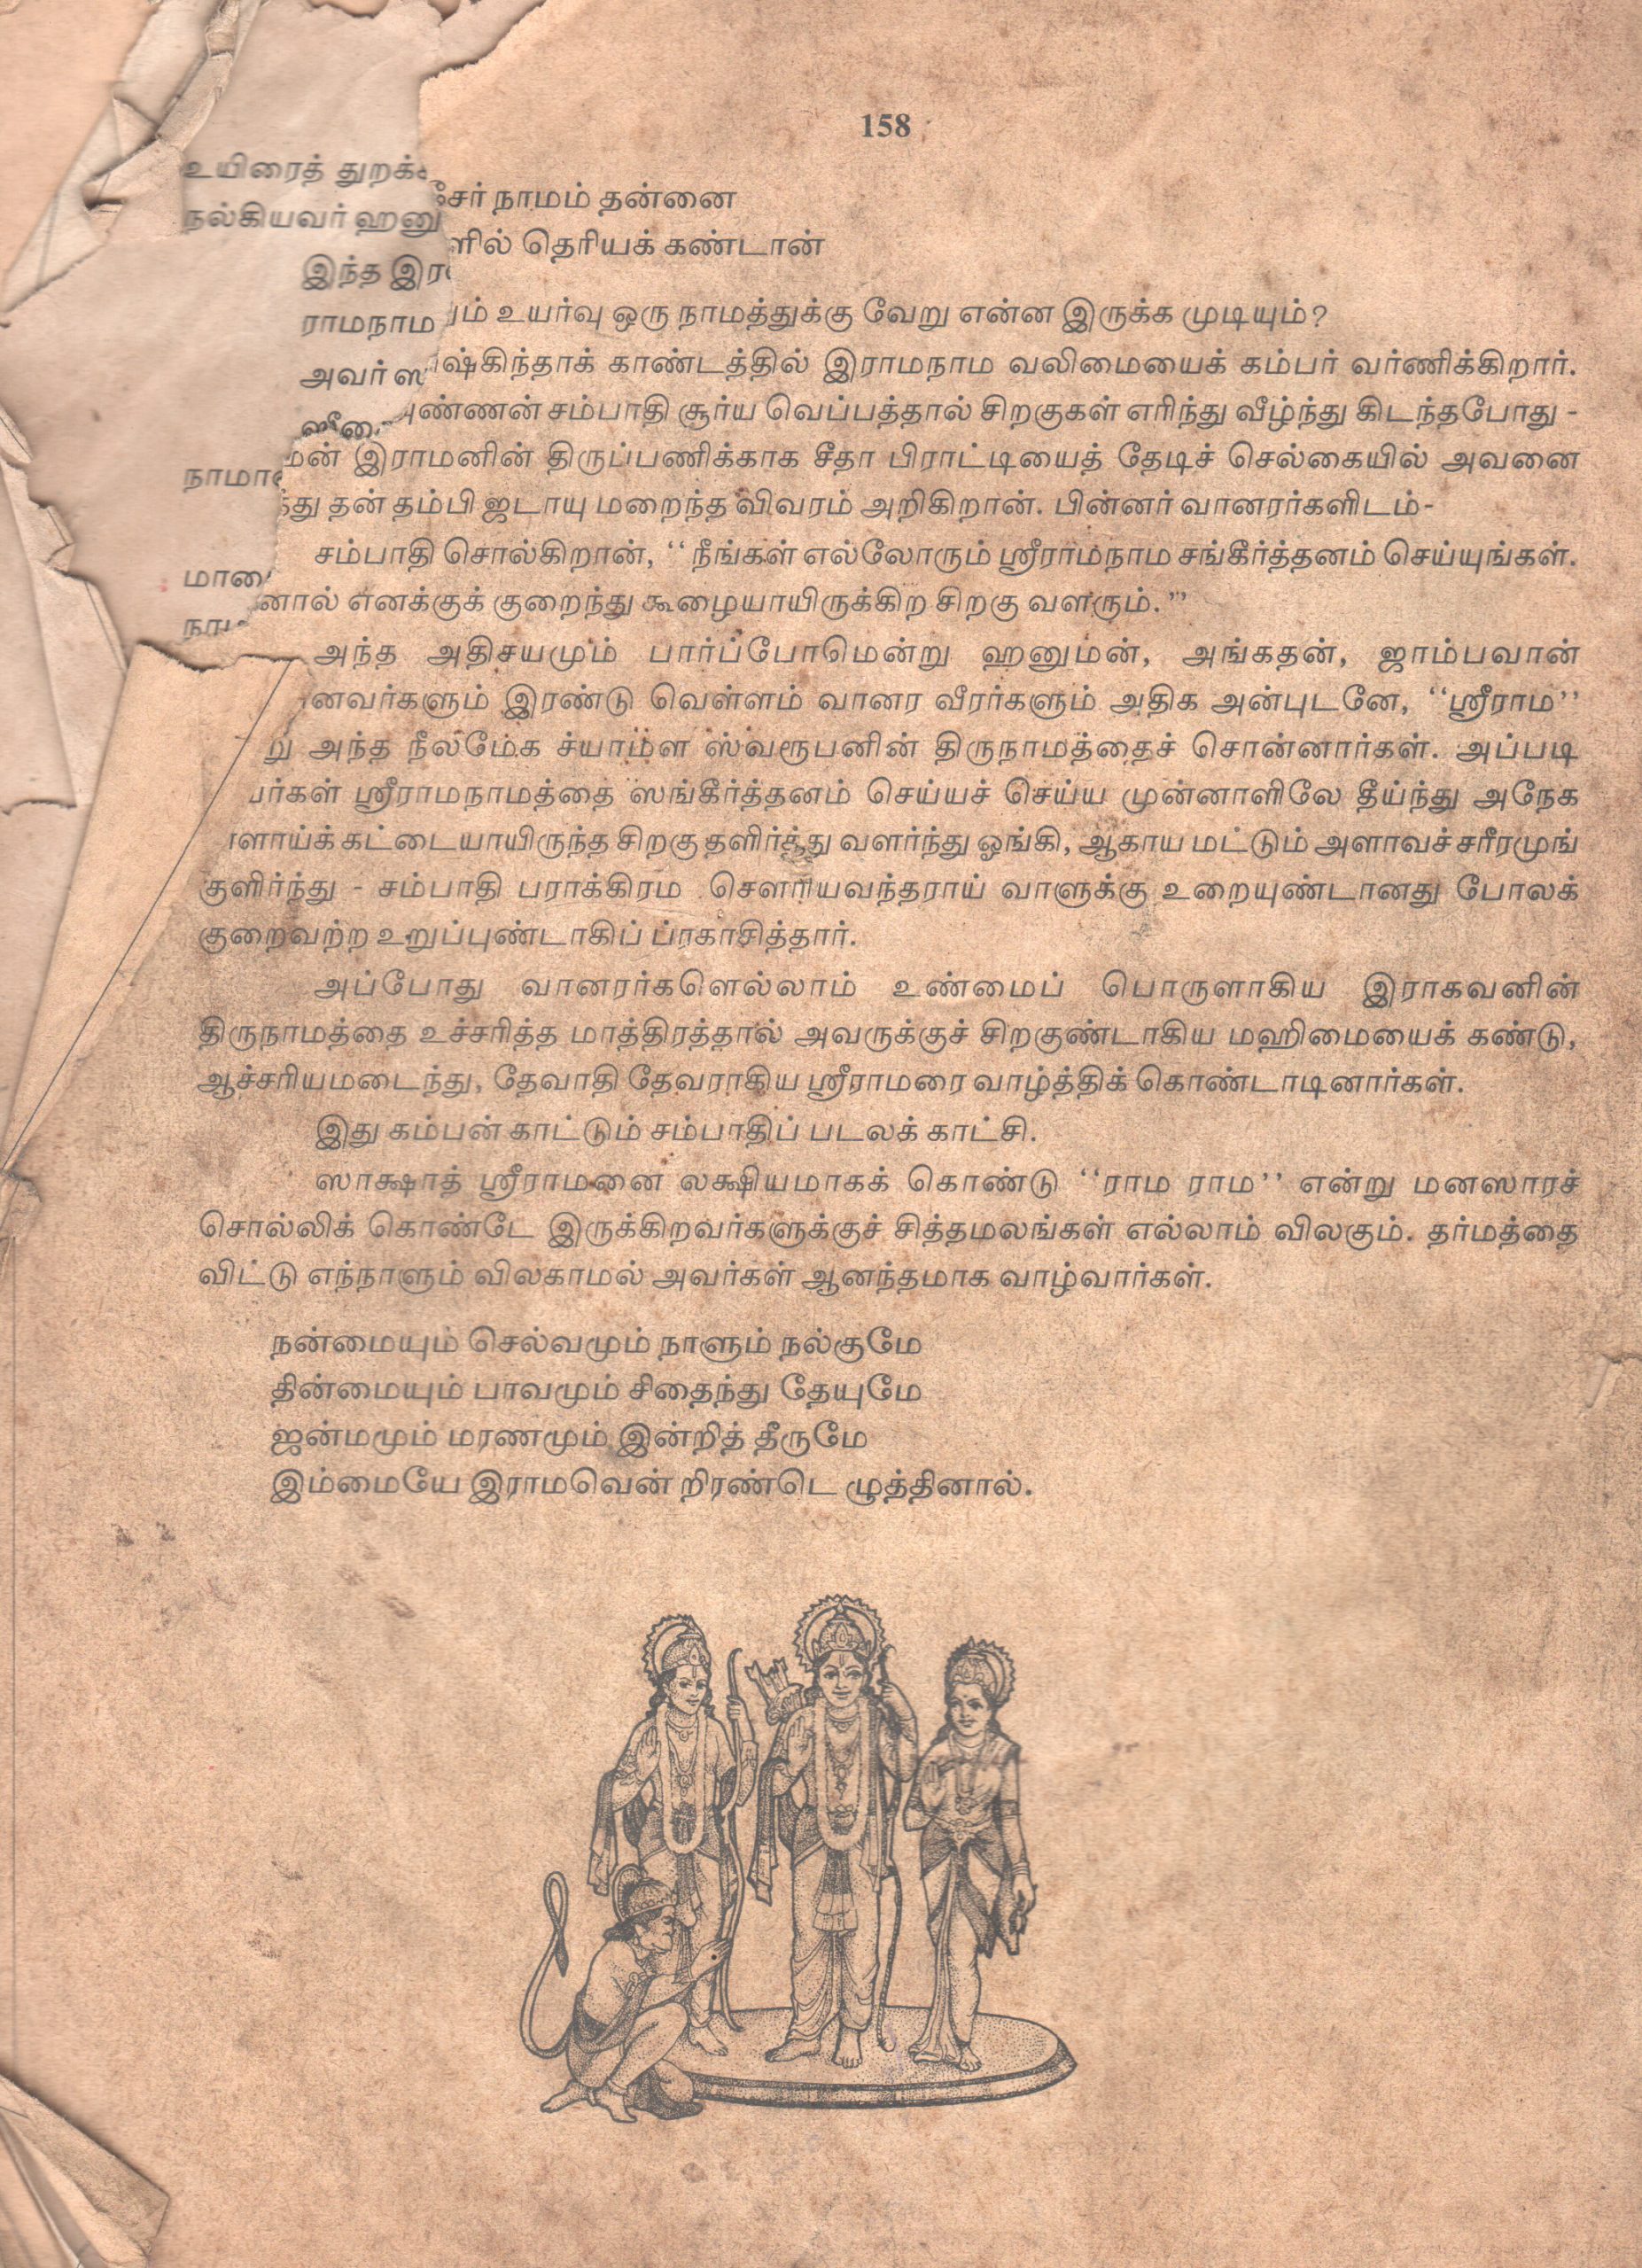 158
உயிரைத்
நல்கியவர்
நாமம் தன்னை
தெரியக் கண்டான்
இந்த
ராமநாம
உயர்வு ஒரு நாமத்துக்கு வேறு என்ன இருக்க முடியும்?
அவர்
காண்டத்தில் இராமநாம வலிமையைக் கம்பர் வர்ணிக்கிறார்.
சம்பாதி சூர்ய வெப்பத்தால் சிறகுகள் எரிந்து வீழ்ந்து கிடந்தபோது -
இராமனின் திருப்பணிக்காக சீதா பிராட்டியைத் தேடிச் செல்கையில் அவனை
தன் தம்பி ஜடாயு மறைந்த விவரம் அறிகிறான். பின்னர் வானரர்களிடம்-
சம்பாதி சொல்கிறான், ‘‘ நீங்கள் எல்லோரும் ஸ்ரீராமநாம சங்கீர்த்தனம் செய்யுங்கள்.
எனக்குக் குறைந்து கூழையாயிருக்கிற சிறகு வளரும்.’’
அந்த அதிசயமும் பார்ப்போமென்று ஹனுமன், அங்கதன், ஜாம்பவான்
இரண்டு வெள்ளம் வானர வீரர்களும் அதிக அன்புடனே, ‘‘ஸ்ரீராம’’
அந்த நீலமேக ச்யாமள ஸ்வரூபனின் திருநாமத்தைச் சொன்னார்கள். அப்படி
ஸ்ரீராமநாமத்தை ஸங்கீர்த்தனம் செய்யச் செய்ய முன்னாளிலே தீய்ந்து அநேக
கட்டையாயிருந்த சிறகு தளிர்த்து வளர்ந்து ஓங்கி, ஆகாய மட்டும் அளாவச் சரீரமுங்
குளிர்ந்து - சம்பாதி பராக்கிரம சௌரியவந்தராய் வாளுக்கு உறையுண்டானது போலக்
குறைவற்ற உறுப்புண்டாகிப் ப்ரகாசித்தார்.
அப்போது வானரர்களெல்லாம் உண்மைப் பொருளாகிய இராகவனின்
திருநாமத்தை உச்சரித்த மாத்திரத்தால் அவருக்குச் சிறகுண்டாகிய மஹிமையைக் கண்டு,
ஆச்சரியமடைந்து, தேவாதி தேவராகிய ஸ்ரீராமரை வாழ்த்திக் கொண்டாடினார்கள்.
இது கம்பன் காட்டும் சம்பாதிப் படலக் காட்சி.
ஸாக்ஷாத் ஸ்ரீராமனை லக்ஷியமாகக் கொண்டு ‘‘ராம ராம’’ என்று மனஸாரச்
சொல்லிக் கொண்டே இருக்கிறவர்களுக்குச் சித்தமலங்கள் எல்லாம் விலகும். தர்மத்தை
விட்டு எந்நாளும் விலகாமல் அவர்கள் ஆனந்தமாக வாழ்வார்கள்.
நன்மையும் செல்வமும் நாளும் நல்குமே
தின்மையும் பாவமும் சிதைந்து தேயுமே
ஜன்மமும் மரணமும் இன்றித் தீருமே
இம்மையே இராமவென் றிரண்டெ ழுத்தினால்.